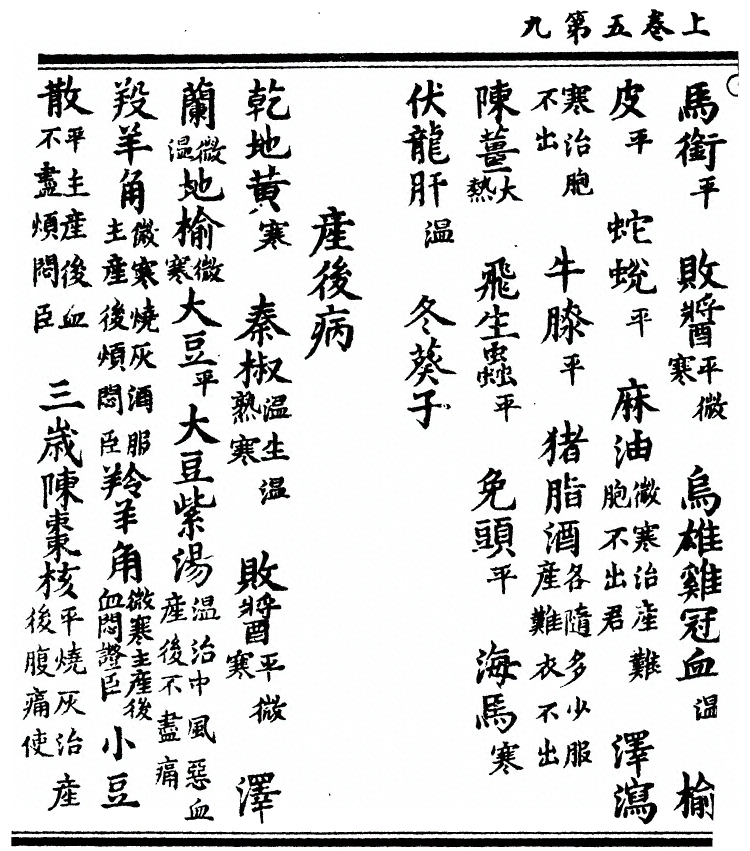 上卷五第九
馬銜平　敗醬平微寒　烏雄雞冠血温　榆
皮平　蛇蛻平　麻油微寒治産難胞不出君　澤瀉
寒治胞不出　牛膝平　猪脂酒各隨多少服産難衣不出
陳薑大熱　飛生蟲平　兔頭平　海馬寒
伏龍肝温　冬葵子
産後病
乾地黄寒　秦椒温生温熟寒　敗醬平微寒　澤
蘭微温地榆微寒大豆平大豆紫湯温治中風惡血産後不盡痛
羖羊角微寒燒灰酒服主産後煩悶臣羚羊角微寒主産後血悶證臣小豆
散平主産後血不盡煩悶臣　三歲陳棗核平燒灰治産後腹痛使